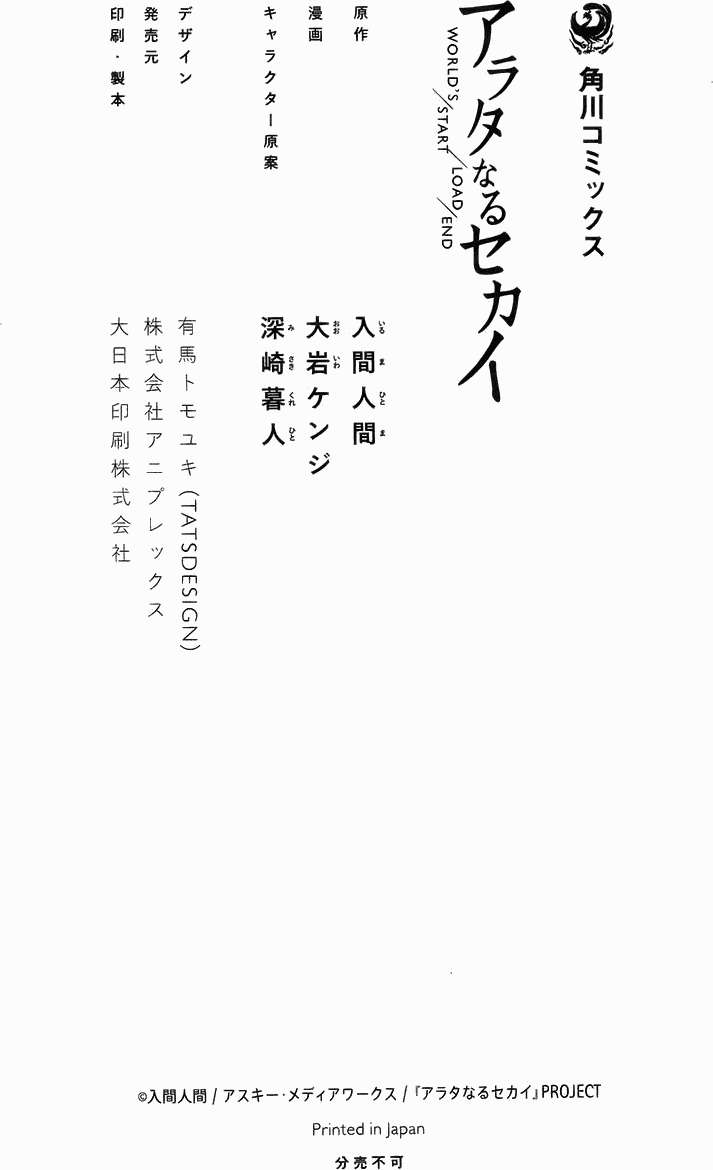 角川コミックス
アラタなるセカイ
WORLD'S/START/LOAD/END
原作 入間人間
いるまひとま
漫画 大岩ケンジ
おおいわ
キャラクター原案 深崎暮人
みさきくれひと
デザイン 有馬トモユキ(TATSDESIGN)
発売元 株式会社アニプレックス
印刷・製本 大日本印刷株式会社
©入間人間/アスキー・メディアワークス/『アラタなるセカイ』PROJECT
Printed in Japan
分売不可